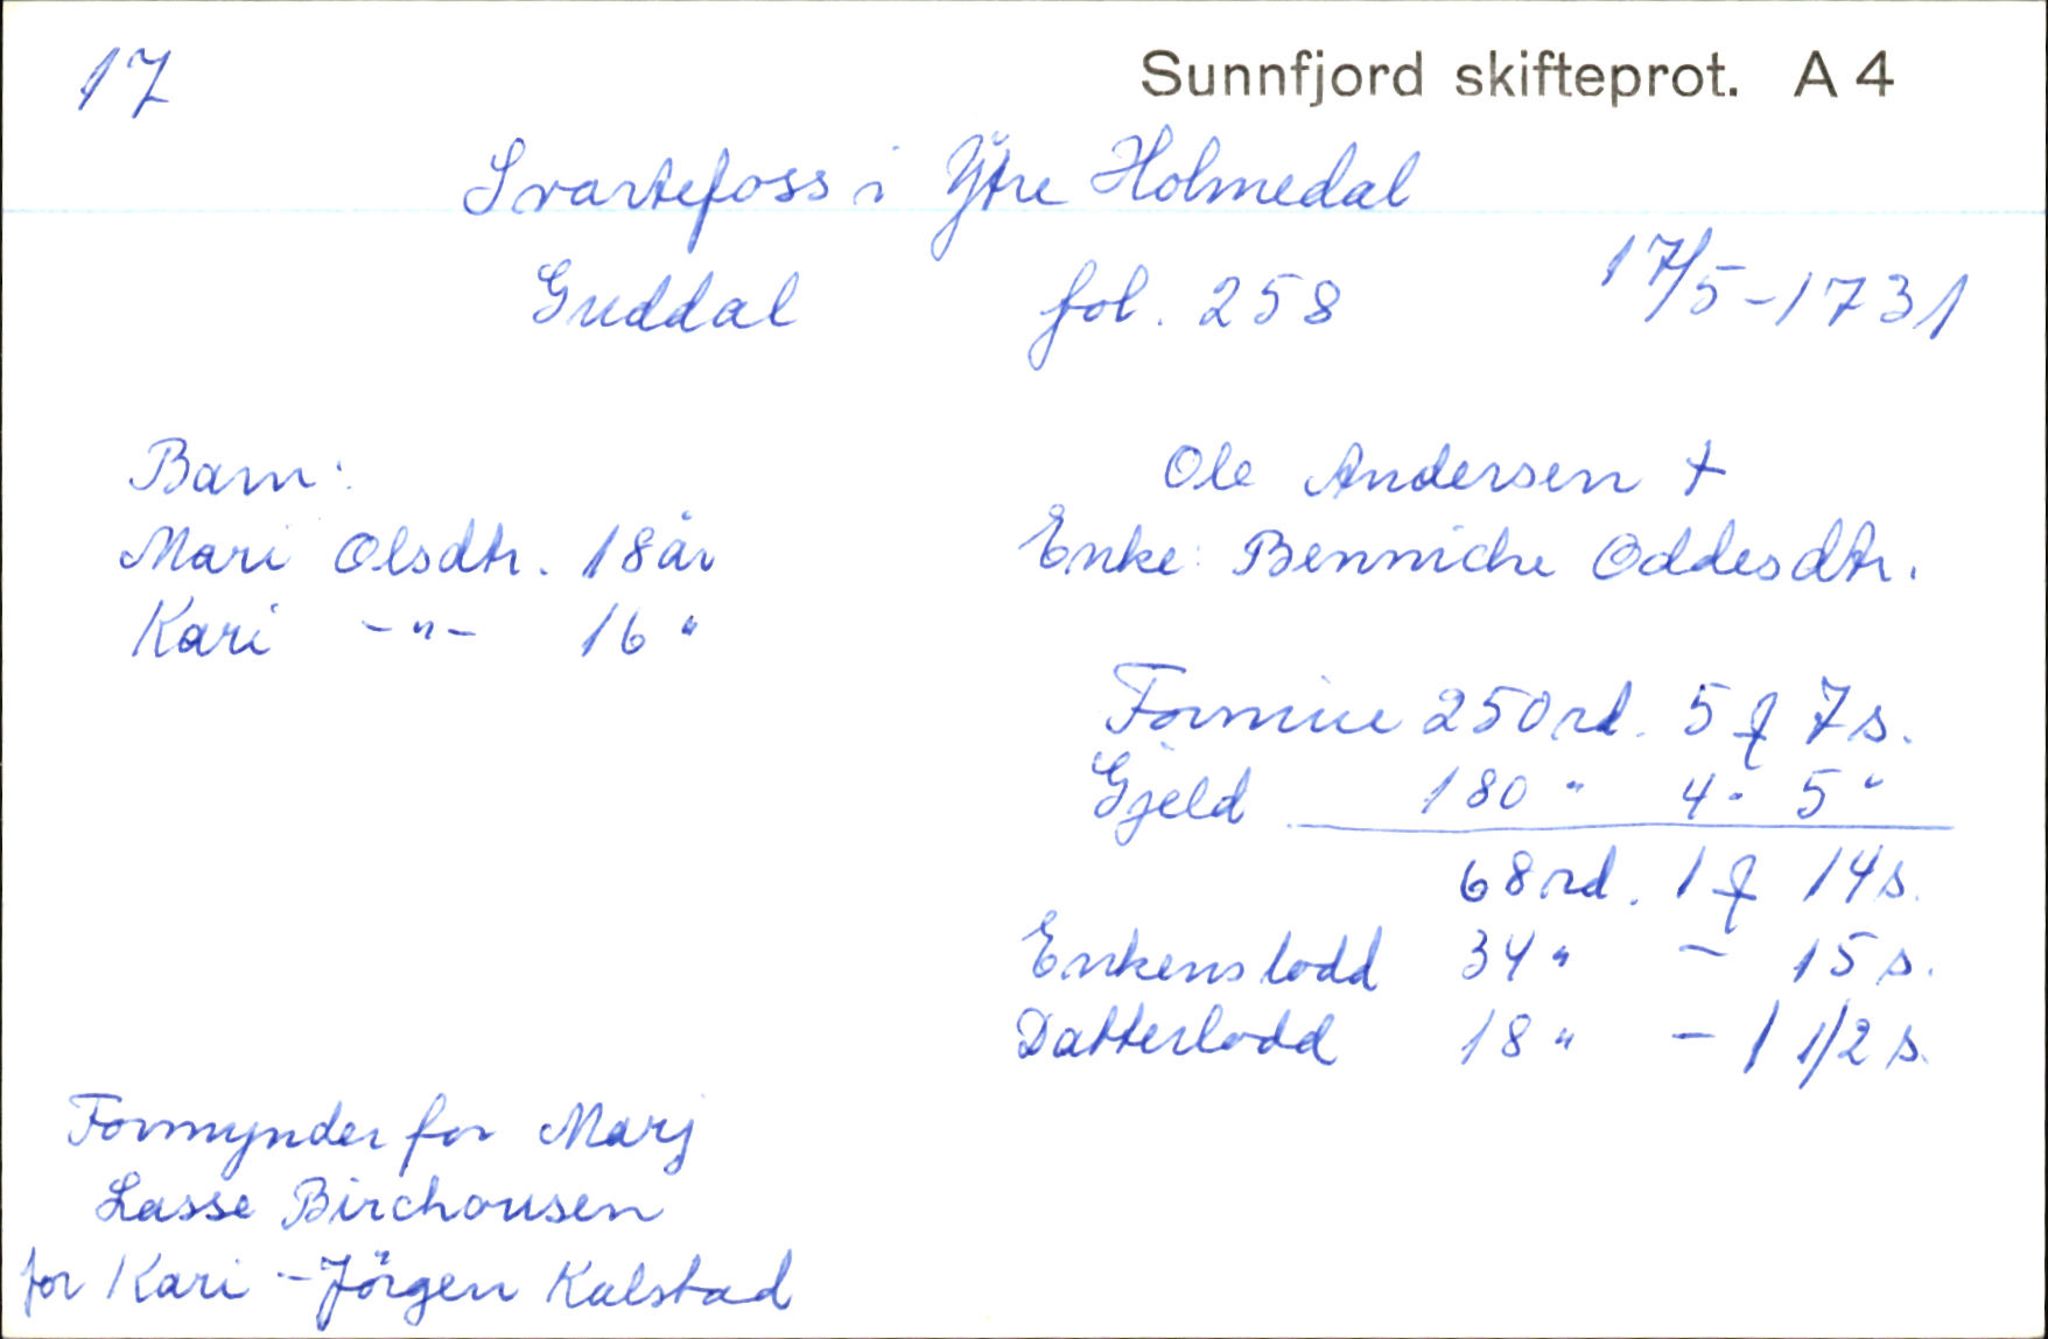 17
Sunnfjord skifteprot. A 4
Svartefoss i Ytre Holmedal
Guddal fol. 258 17/5-1731
Barn:
Mari Olsdtr. 18 år
Kari -"- 16 "
Ole Andersen +
Enke: Benniche Oddesdtr.
Formue 250 rd. 5 ꝑ 7 s.
Gjeld 180 " 4 " 5 "
68 rd. 1 ꝑ 14 s.
Enkens lodd 34 " - 15 s.
Datterlodd 18 " - 1 1/2 s.
Formynder for Marj
Lasse Birchousen
for Kari - Jörgen Kalstad